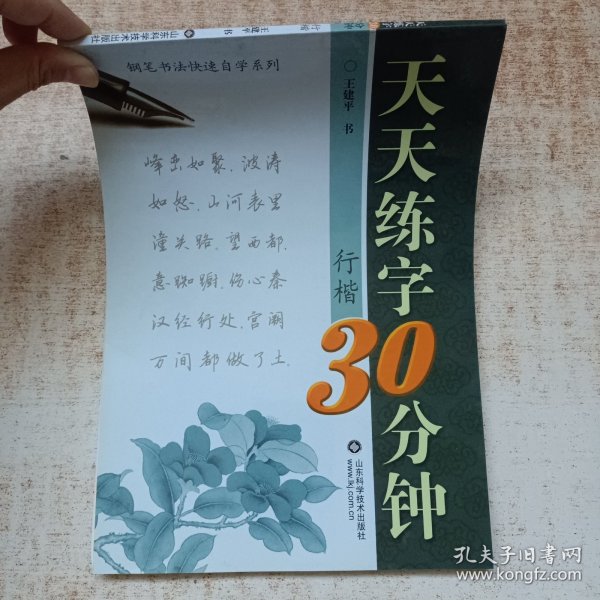 山东科学技术出版社
王建平 书
钢笔书法快速自学系列
王建平 书
天天练字30分钟
行楷
峰峦如聚,波涛
如怒,山河表里
潼关路,望西都,
意踟蹰,伤心秦
汉经行处,宫阙
万间都做了土.
山东科学技术出版社
www.lkj.com.cn
孔夫子旧书网
www.kongfz.com